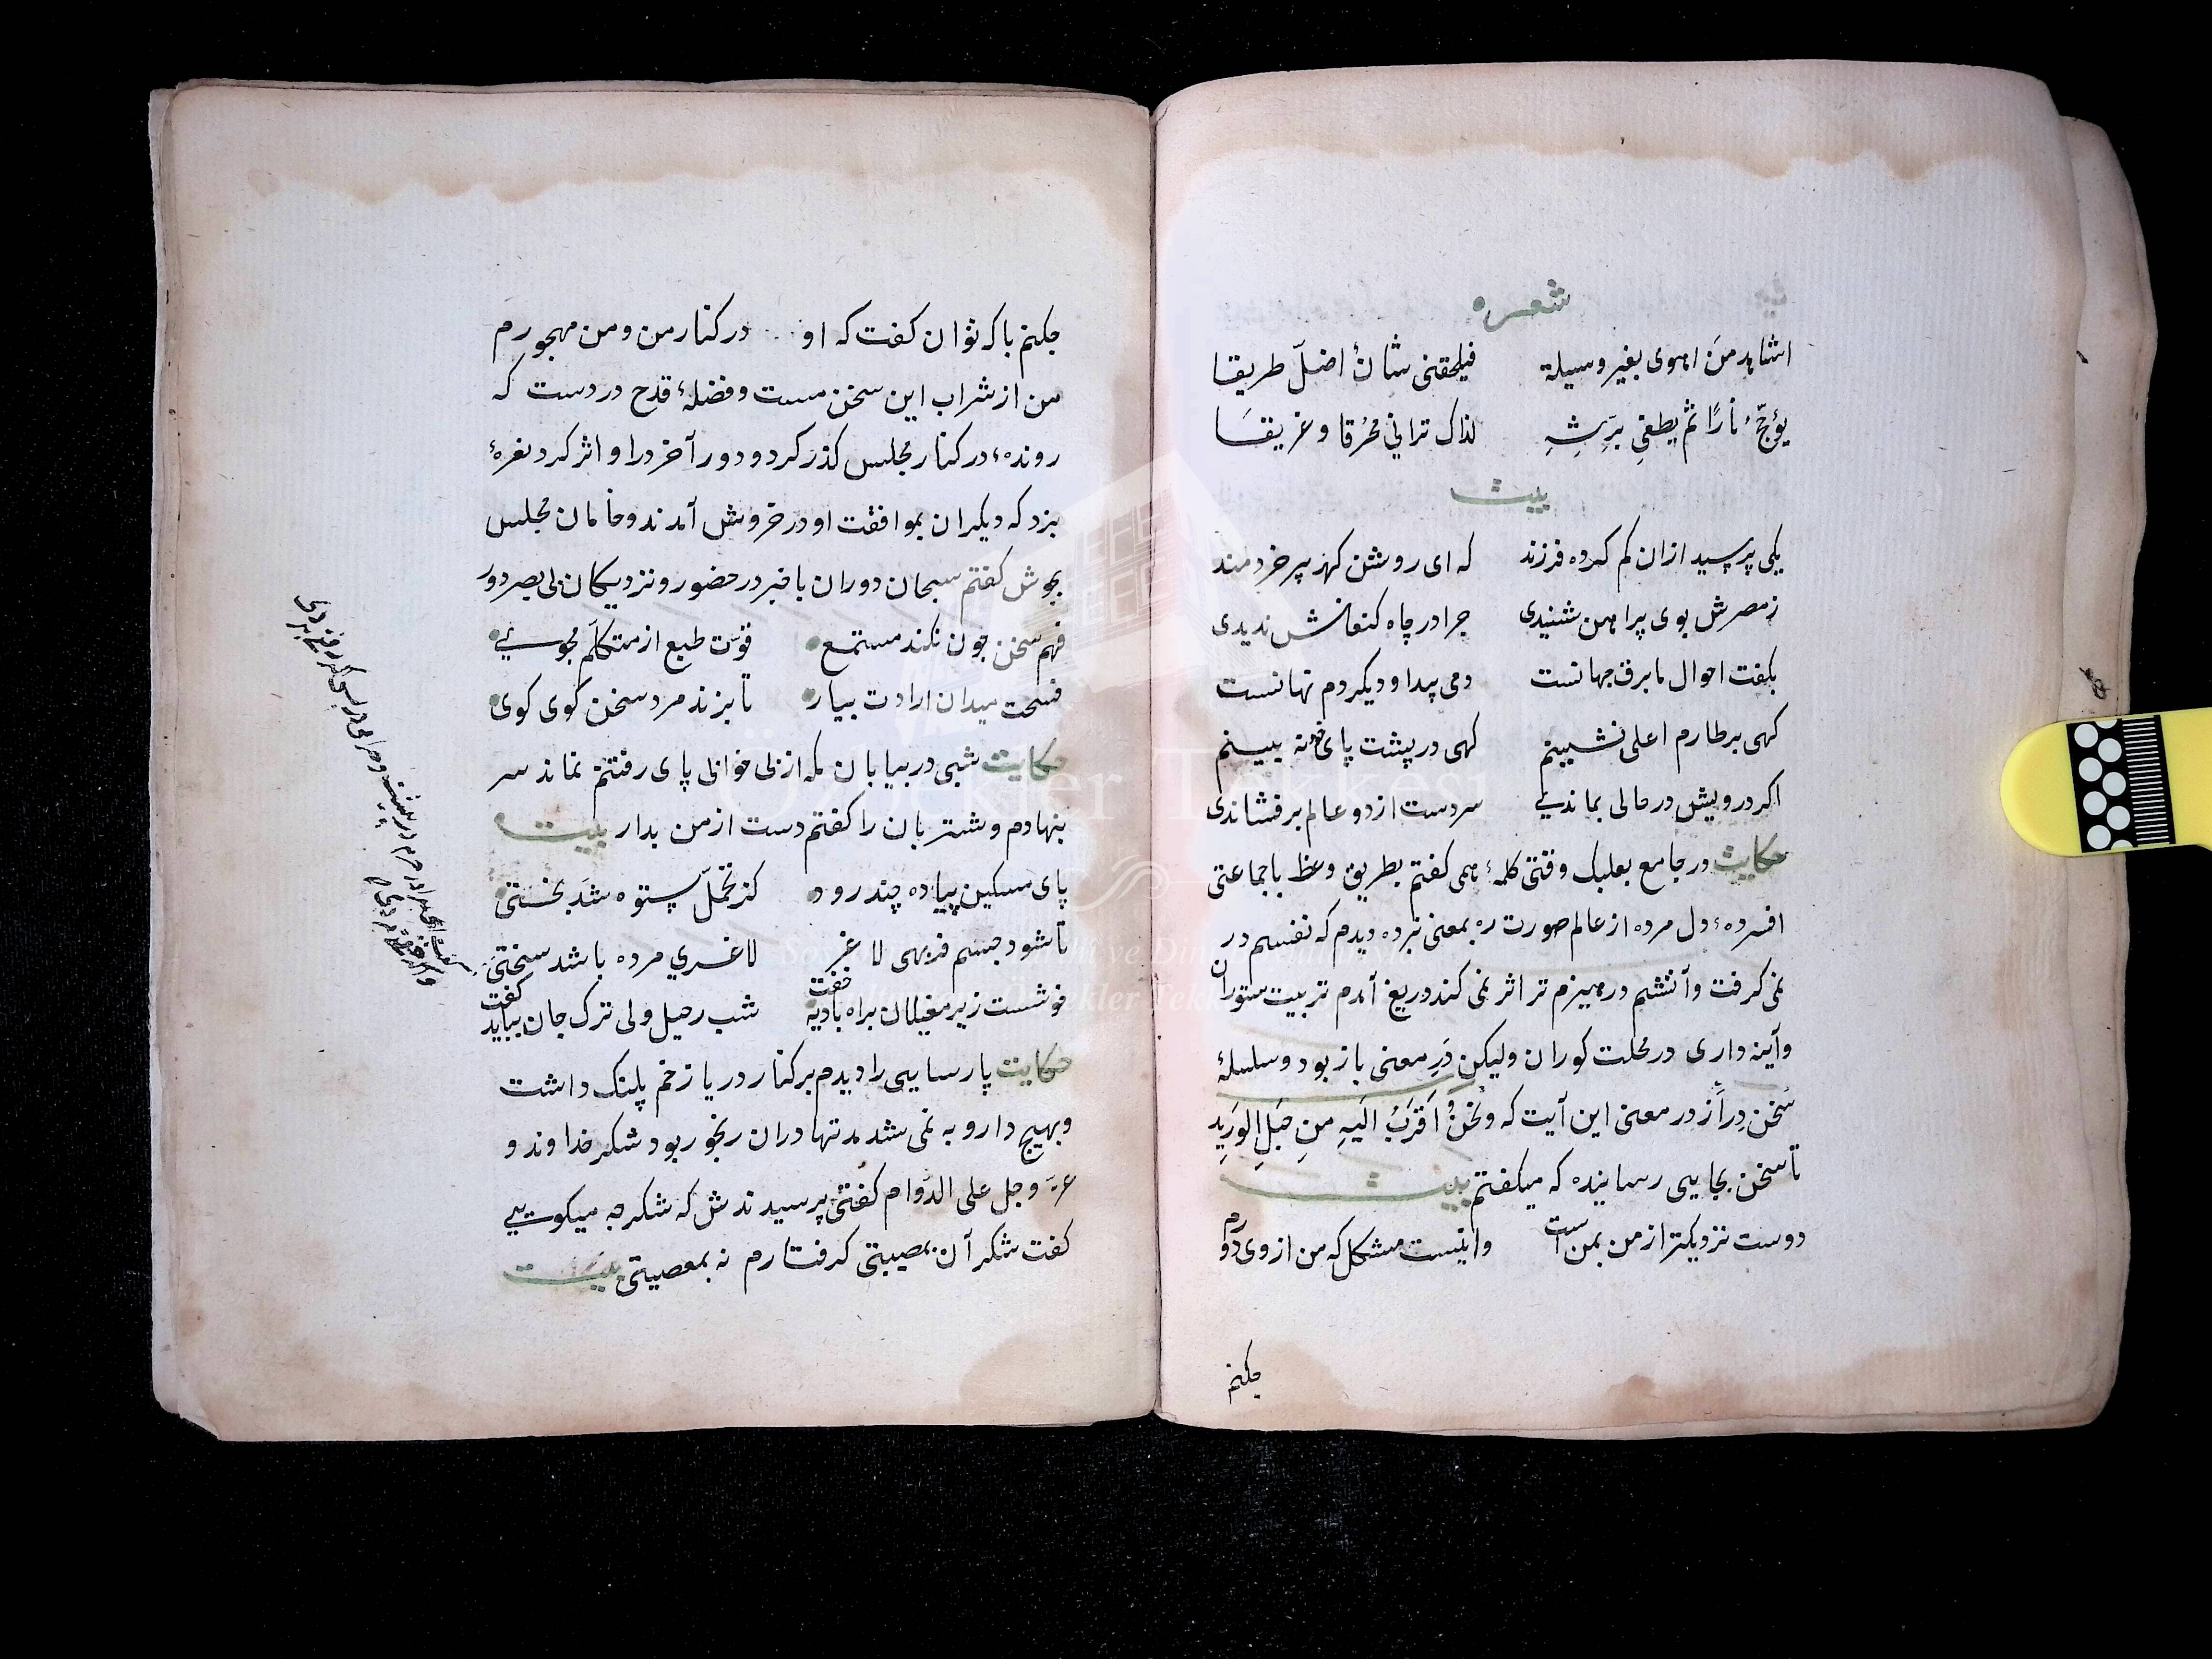 شعر
اشاهد من اهوی بغیر وسیلة فیلحقنی شان اضلّ طریقا
یؤجّج نارًا ثم یطفی برشه لذاک ترانی محرقا و غریقا
بیت
یکی پرسید ازان کم کرده فرزند که ای روشن کهر پیر خردمند
ز مصرش بوی پیراهن شنیدی چرا در چاه کنعانش ندیدی
بکفت احوال ما برق جهانست دمی پیدا و دیکر دم نهانست
کهی بر طارم اعلی نشینم کهی در پشت پای خود نبینم
اکر درویش در حالی بماندی سر دست از دو عالم برفشاندی
حکایت در جامع بعلبک وقتی کلمهٔ همی کفتم بطریق وعظ با جماعتی
افسرده دل مرده از عالم صورت ره بمعنی نبرده دیدم که نفسم در
نمی کرفت و آتشم در هیزم تر اثر نمی کند دریغ آمدم تربیت ستوران
و آینه داری در محلت کوران ولیکن در معنی باز بود و سلسلهٔ
سخن دراز در معنی این آیت که و نَحْنُ اَقْرَبُ اِلَیهِ مِن حَبلِ الوَرِیدِ
تا سخن بجایی رسانیده که میکفتم بیت
دوست نزدیکتر از من بمن است وانیست مشکل که من از وی دورم
چکنم
چکنم با که توان کفت که او در کنار من و من مهجورم
من از شراب این سخن مست و فضلهٔ قدح در دست که
روندهٔ در کنار مجلس کذر کرد و دور آخر در او اثر کرد نعرهٔ
بزد که دیکران بموافقت او در خروش آمدند و خامان مجلس
بجوش کفتم سبحان دوران باخبر در حضور و نزدیکان بی بصر دور
فهم سخن چون نکند مستمع قوّت طبع از متکلّم مجوی
فسحت میدان ارادت بیار تا بزند مرد سخن کوی کوی
حکایت شبی در بیابان مکه از بی خوابی پای رفتنم نماند سر
بنهادم و شتربان را کفتم دست از من بدار بیت
پای مسکین پیاده چند رود کز تحمّل ستوه شد بختی
تا شود جسم فربهی لاغر لاغری مرده باشد سختی
خوشست زیر مغیلان براه بادیه خفت شب رحیل ولی ترک جان بباید کفت
حکایت پارسایی را دیدم بر کنار دریا زخم پلنک داشت
و بهیچ دارو به نمی شد مدتها دران رنجور بود شکر خداوند و
عزّ و جل علی الدّوام کفتی پرسیدندش که شکر چه میکویی
کفت شکر آن بمصیبتی کرفتارم نه بمعصیتی بیت